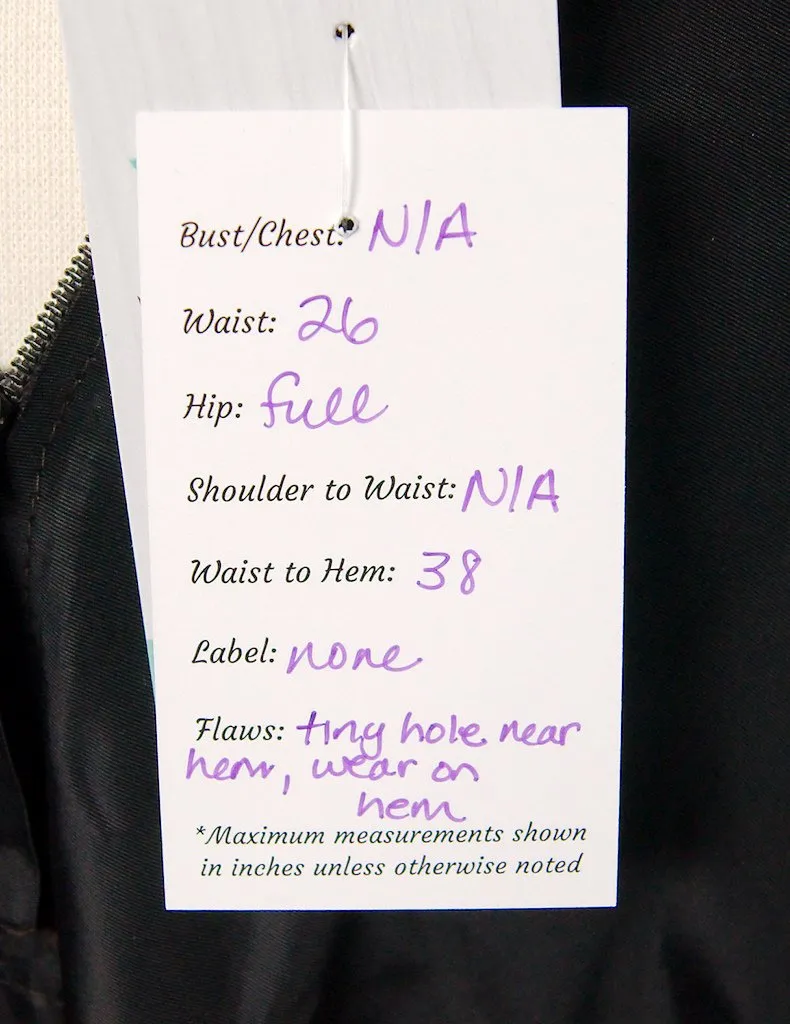 Bust/Chest: N/A
Waist: 26
Hip: full
Shoulder to Waist: N/A
Waist to Hem: 38
Label: none
Flaws: tiny hole near
hem, wear on
hem
*Maximum measurements shown
in inches unless otherwise noted